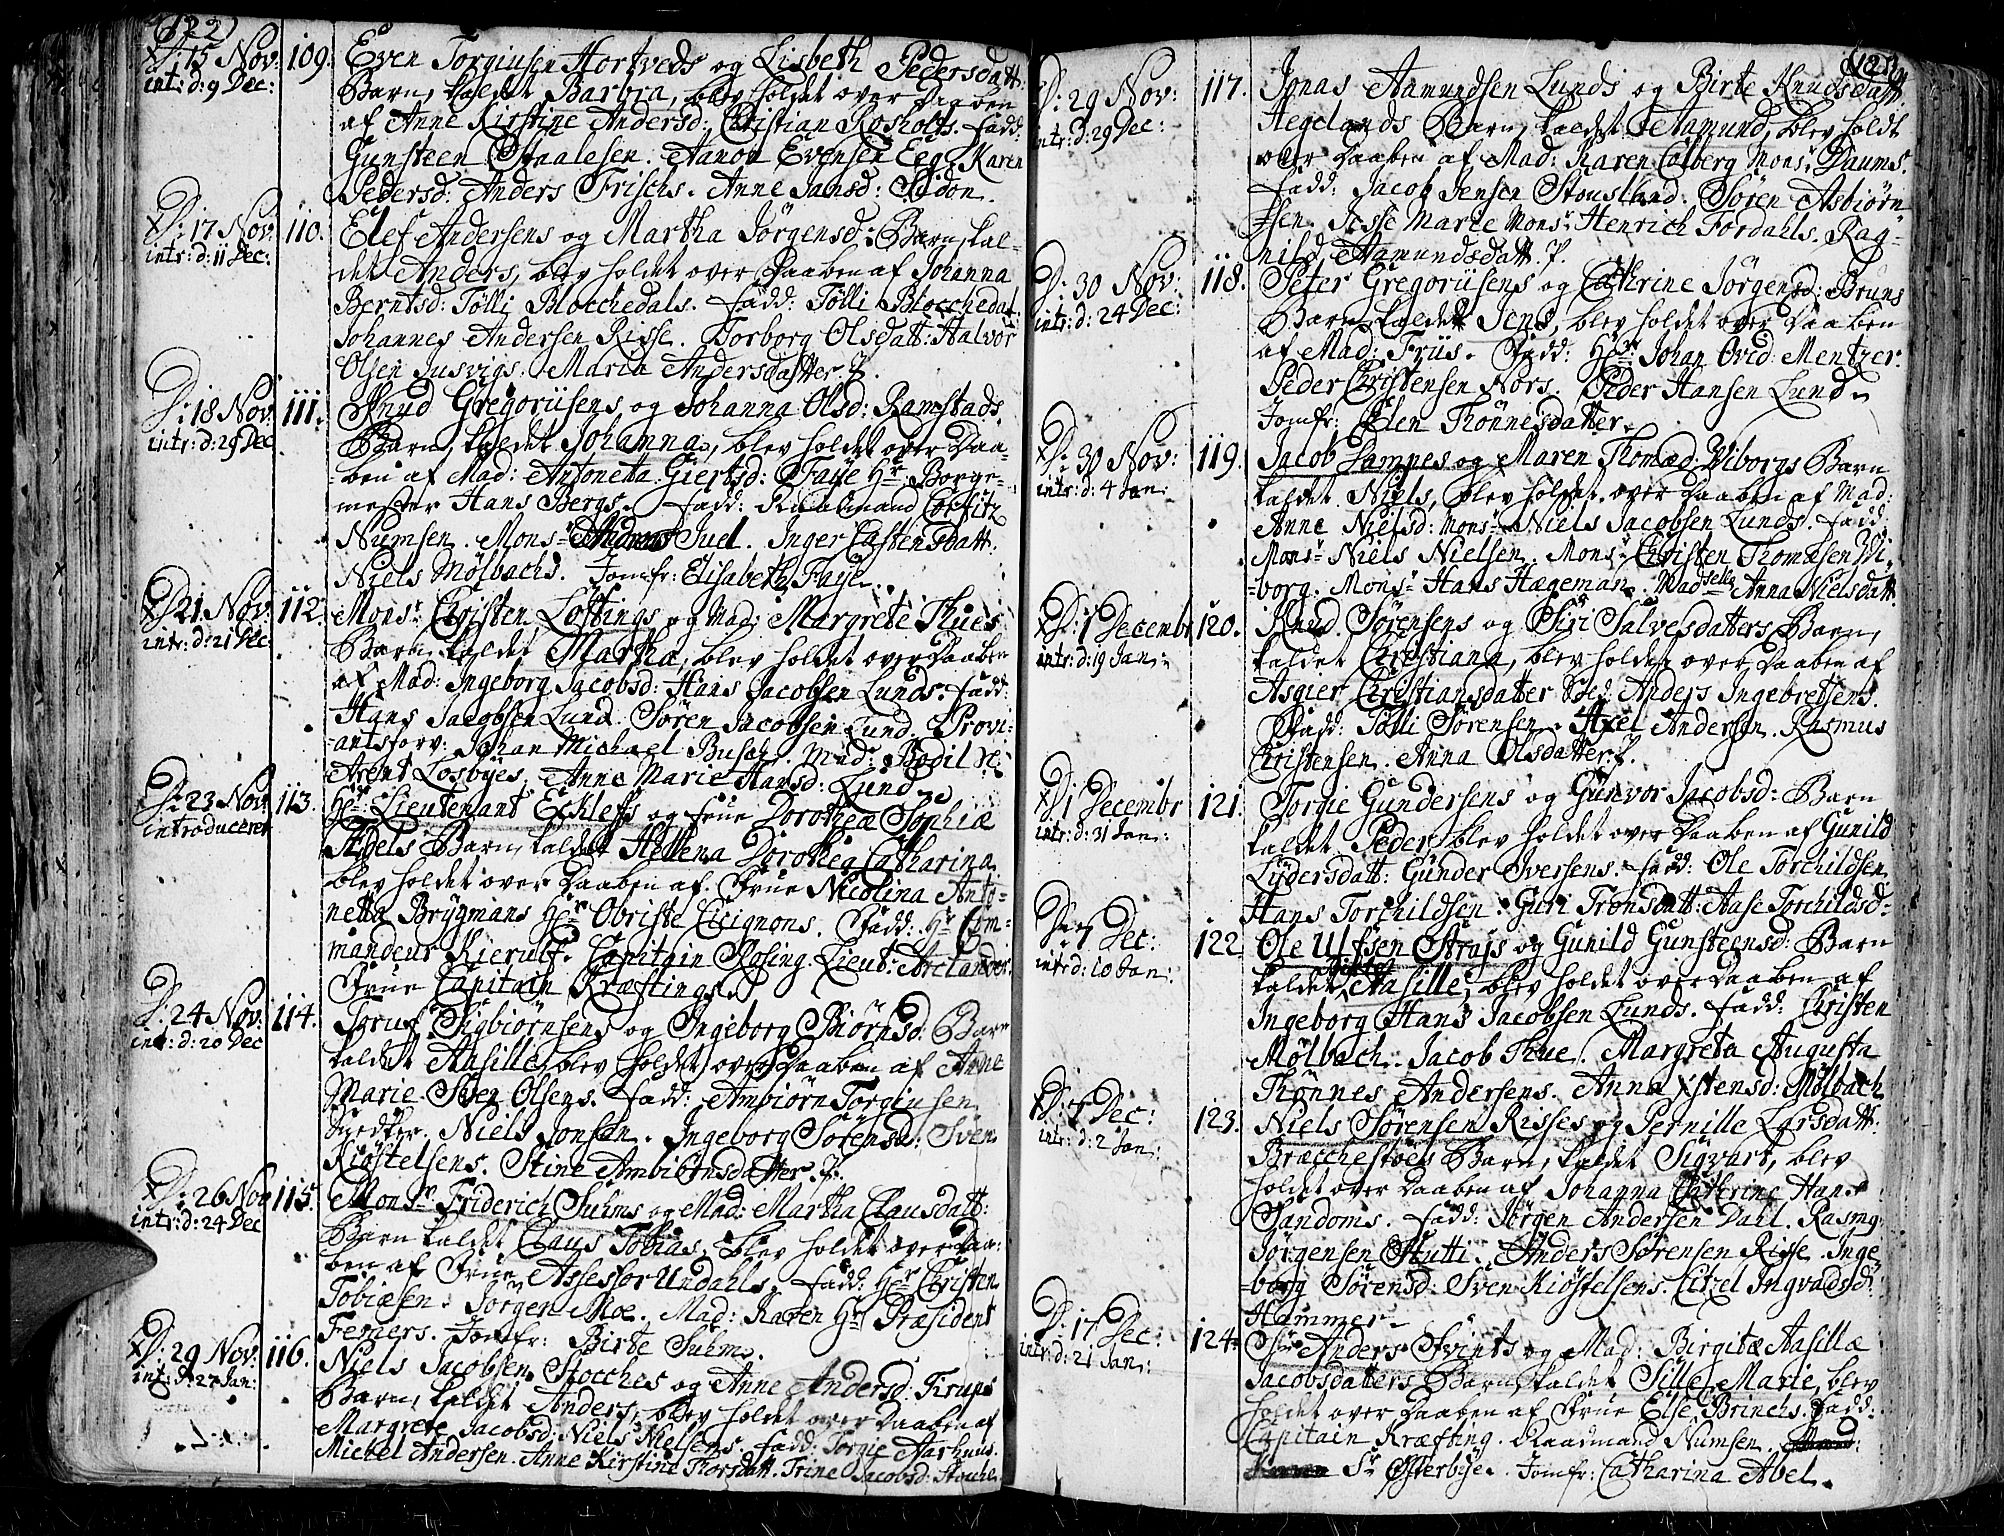 (122)
D: 15 Nov: 109. Even Torgiusen Hortveds og Lisbeth Pedersdatt:
intr: d: 9 Dec: Barn, kaldet Barbra, blev holdet over Daaben
af Anne Kirstine Andersd: Christian Rosholts. fadd:
Gunsteen Staalesen. Aanon Evensen Eeg. Karen
Pedersd: Anders Frischs. Anne Jansd: Sidon.
D: 17 Nov: 110. Elef Andersens og Martha Jörgensd: Barn, kal-
intr: d: 11 Dec: det Anders, blev holdet over Daaben af Johanna
Berntsd: Tölli Blocchedals. fadd: Tölli Blocchedal.
Johannes Andersen Risse. Torborg Olsdatt: Halvor
Olsen Jusvigs. Maria Andersdatter.
D: 18 Nov 111. Knud Gregoriisens og Johanna Olsd: Ramstads
intr: d: 29 Dec Barn, kaldet Johanna, blev holdet over Daa-
-ben af Mad: Antonetta Giertsd: Faye Hr Borge-
mester Hans Bergs. fadd: Raadmand
Numsen. Monsr Juel. Inger Castensdatt:
Niels Mölbachs. Jomfr: Elisabeth Faye.
D: 21 Nov: 112. Monsr Christen Löftings og Mad: Margrete Thues
intr: d: 21 Dec: Barn, kaldet Martha, blev holdet over Daaben
af Mad: Ingeborg Jacobsd: Hans Jacobsen Lunds. fadd:
Hans Jacobsen Lund. Sören Jacobsen Lund. Provi-
-antsforv: Johan Michael Busch. Mad: Bodil
Arent Losbyes. Anne Marie Hansd: Lund
D: 23 Nov 113. Hr Lieutenant Eckleffs og frue Dorotheæ Sophiæ
introduceret Abels Barn, kaldet Hellena Dorothea Catharina
blev holdet over Daaben af Frue Nicolina Anto-
netta Brygmans Hr Obriste Cicignons. Fadd: Hr Com-
mandeur Kierulf. Capitain Rosing. Lieut: Arelander.
Frue Capitain Kræftings.
D: 24 Nov: 114. Sigbiörnsens og Ingeborg Biörnsd: Barn
intr: d: 20 Dec kaldet Aasille, blev holdet over Daaben af Anne
Marie Sven Olsens. fadd: Ambiörn Torgiusen
Niels Jonsen. Ingeborg Sörensd: Sven
Kiöstelsens. Stine Ambiörnsdatter.
D: 26 Nov 115. Monsr Friderich Suhms og Mad: Martha Clausdatt:
intr: d: 24 Dec Barn kaldet Claus Tobias, blev holdet over Daa-
ben af Frue Assessor Undahls. fadd: Hr Christen
Tobiæsen. Jörgen Moe. Mad: Karen Hr Præsident
Fergers. Jomfr: Birte Suhm.
D: 29 Nov: 116. Niels Jacobsen Stocches og Anne Andersd: Tirups
int: d: 27 Jan: Barn, kaldet Anders, blev holdet over Daaben af
Margrete Jacobsd: Niels Nielsens. fadd: Torgie Aarhuus.
Mickel Andersen. Anne Kirstine Thorsdatt. Trine Jacobsd: Stoche
D: 29 Nov: 117. Jonas Aamundsen Lunds og Birte Knudsdatt
intr: d: 29 Dec: Hegelands Barn, kaldet Aamund, blev holdt
over Daaben af Mad: Karen Colberg Monsr Daums.
fadd: Jacob Jensen Stousland. Sören Asbiörn-
-sen. Sesse Marie Monsr Henrich Fordahls. Rag-
nild Aamundsdatt.
D: 30 Nov: 118. Peter Gregoriisens og Cathrine Jörgensd: Bruns
intr: d: 24 Dec: Barn, kaldet Jens, blev holdet over Daaben
af Mad: Friis. Fadd: Hr Johan Ovid: Mentzer
Peder Christensen Nors. Peder Hansen Lund
Jomfr: Elen Thönnesdatter.
D: 30 Nov: 119. Jacob Lampes og Maren Thomæd: Wiborgs Barn
intr: d: 4 Jan: kaldet Niels, blev holdet over Daaben af Mad:
Anne Nielsd: Monsr Niels Jacobsen Lunds. fadd:
Monsr Niels Nielsen. Monsr Christen Thomæsen Wi-
-borg. Monsr Hans Hageman. Madselle Anna Nielsdatt.
D: 1 Decembr 120. Knud Sörensens og Siri Salvesdatters Barn,
intr: d: 19 Jan: kaldet Christiana, blev holdet over Daaben af
Asgier Christiansdatter Anders Ingebretsens.
Fadd: Tölli Sörensen. Axel Andersen. Rasmus
Christensen. Anna Olsdatter.
D: 1 Decembr 121. Torgie Gundersens og Gunvor Jacobsd: Barn
intr: d: 31 Jan: kaldet Peder, blev holdet over Daaben af Gunild
Lydersdatt: Gunder Iversens. fadd: Ole Torchildsen
Hans Torchildsen. Guri Tronsdatt: Aase Torchildsd-
D: 7 Dec: 122. Ole Ulfsen Strays og Gunild Gunsteensd: Barn
intr: d: 10 Jan: kaldet Aasille, blev holdet over Daaben af
Ingeborg Hans Jacobsen Lunds. fadd: Christen
Mölbach. Jacob Thue. Margreta Augusta
Thönnes Andersens. Anna Xstensd: Mölbach
D: 7 Dec: 123. Niels Sörensen Risses og Pernille Larsdatt:
intr: d: 2 Jan: Bræcchestöes Barn, kaldet Sigvart, blev
holdet over Daaben af Johanna Catrine Hans
Sandoms. fadd: Jörgen Andersen Dahl. Rasmg
Jörgensen Stutti. Anders Sörensen Risse. Inge-
-borg Sörensd: Sven Kiöstelsens. Citzel Ingvadsd:
Hammer.
D: 17 Dec: 124. Sr Anders Svints og Mad: Birgitæ Aasillæ
intr: d: 21 Jan: Jacobsdatters Barn, kaldet Sille Marie, blev
holdet over Daaben af Frue Else Brincks. Fadd:
Capitain Kræfting. Raadmand Numsen.
Sr Österbye. Jomfr: Catharina Abel.